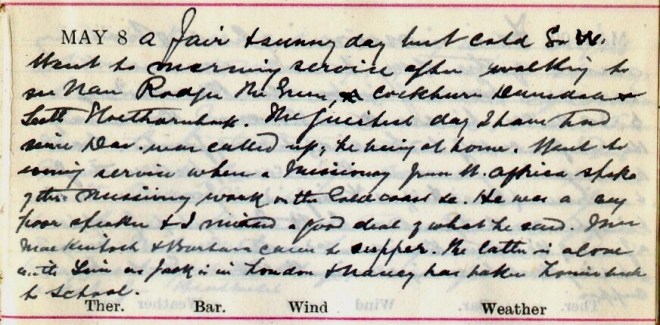 MAY 8 a fair & sunny day but cold S.W.
Went to morning service after walking to
see Nan Rodger
Scott. The day I have had
since Dav. was called up; he being at home. Went to
evening service when a Missionary from W. Africa spoke
of the Missionary work on the Gold coast &c. He was a very
poor speaker & I missed a good deal of what he said. Mrs
Mackintosh & came to supper. The latter is alone
with as Jack is in London & Nancy has taken back
to School.
Ther. Bar. Wind Weather